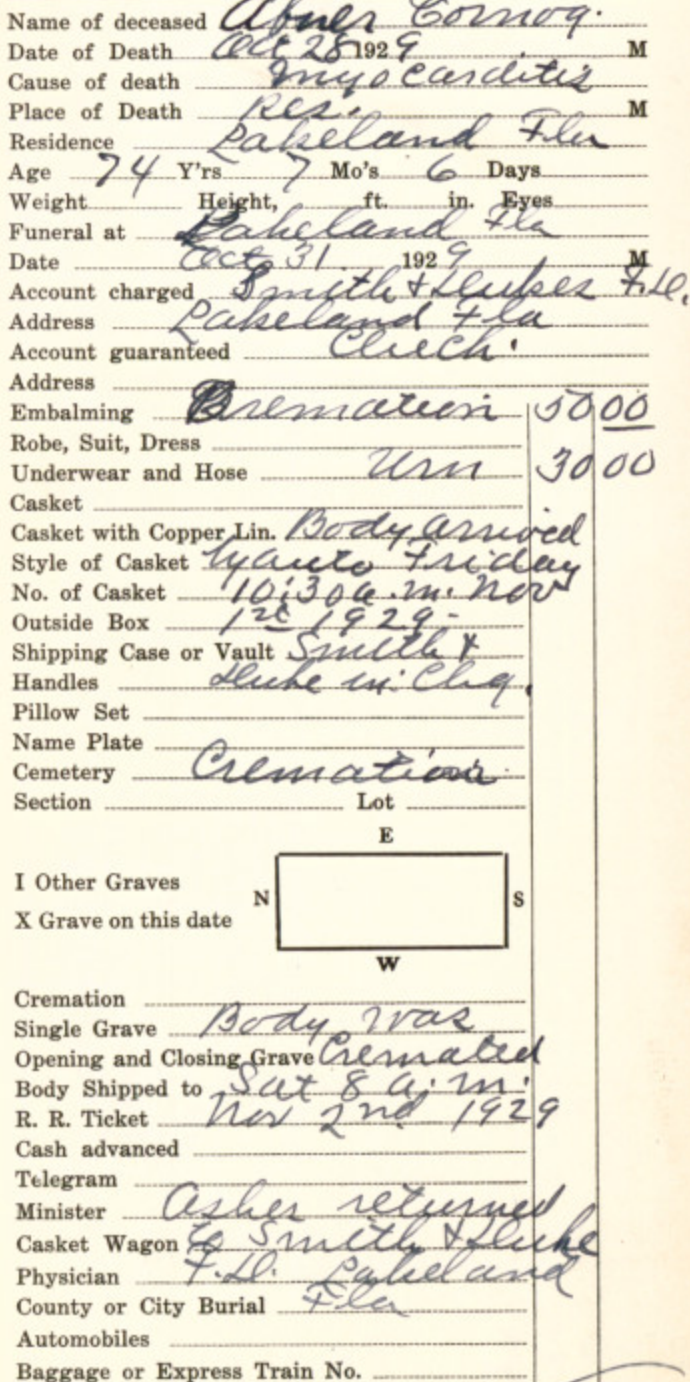 Name of deceased Abner Cornog.
Date of Death Oct 28 1929 M
Cause of death myocarditis
Place of Death Res. M
Residence Lakeland Fla
Age 74 Y'rs 7 Mo's 6 Days
Weight Height, ft. in. Eyes
Funeral at Lakeland Fla
Date Oct 31 1929 M
Account charged Smith & Dukes F.D.
Address Lakeland Fla
Account guaranteed Check.
Address
Embalming Cremation 50 00
Robe, Suit, Dress
Underwear and Hose Urn 30 00
Casket
Casket with Copper Lin. Body arrived
Style of Casket by auto Friday
No. of Casket 10:30 a.m. Nov
Outside Box 1st 1929-
Shipping Case or Vault Smith &
Handles Duke in Chg.
Pillow Set
Name Plate
Cemetery Cremation
Section Lot
E
I Other Graves
N S
X Grave on this date
W
Cremation
Single Grave Body was
Opening and Closing Grave Cremated
Body Shipped to Sat 8 a.m.
R. R. Ticket Nov 2nd 1929
Cash advanced
Telegram
Minister Ashes returned
Casket Wagon to Smith & Duke
Physician F.D. Lakeland
County or City Burial Fla
Automobiles
Baggage or Express Train No.